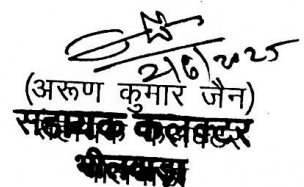 2/6/2025
(अरूण कुमार जैन)
सहायक कलक्टर
भीलवाड़ा